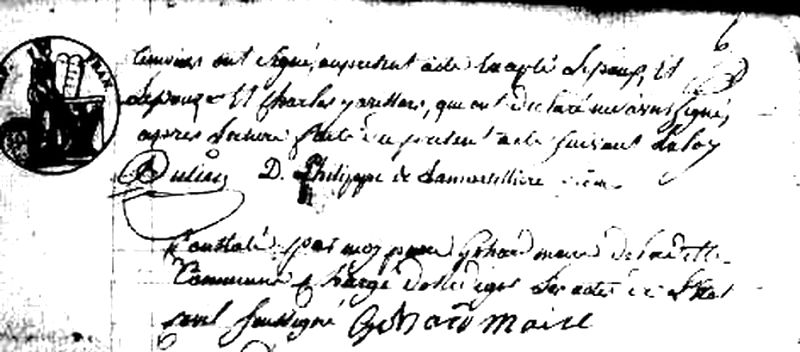 6
FRAN
temoins ont signé au present acte Excepté Lepoux, Et
Lepouze Et Charles, qui ont declaré ne savoir signer,
apres lecture faite du present acte suivant La loy
Julien D. Philippe de Lamartilliere
Constaté par moy pierre Gohard maire de la ditte
Commune Chargé de Rediger Les actes de L'Etat
civil soussigné Gohard maire